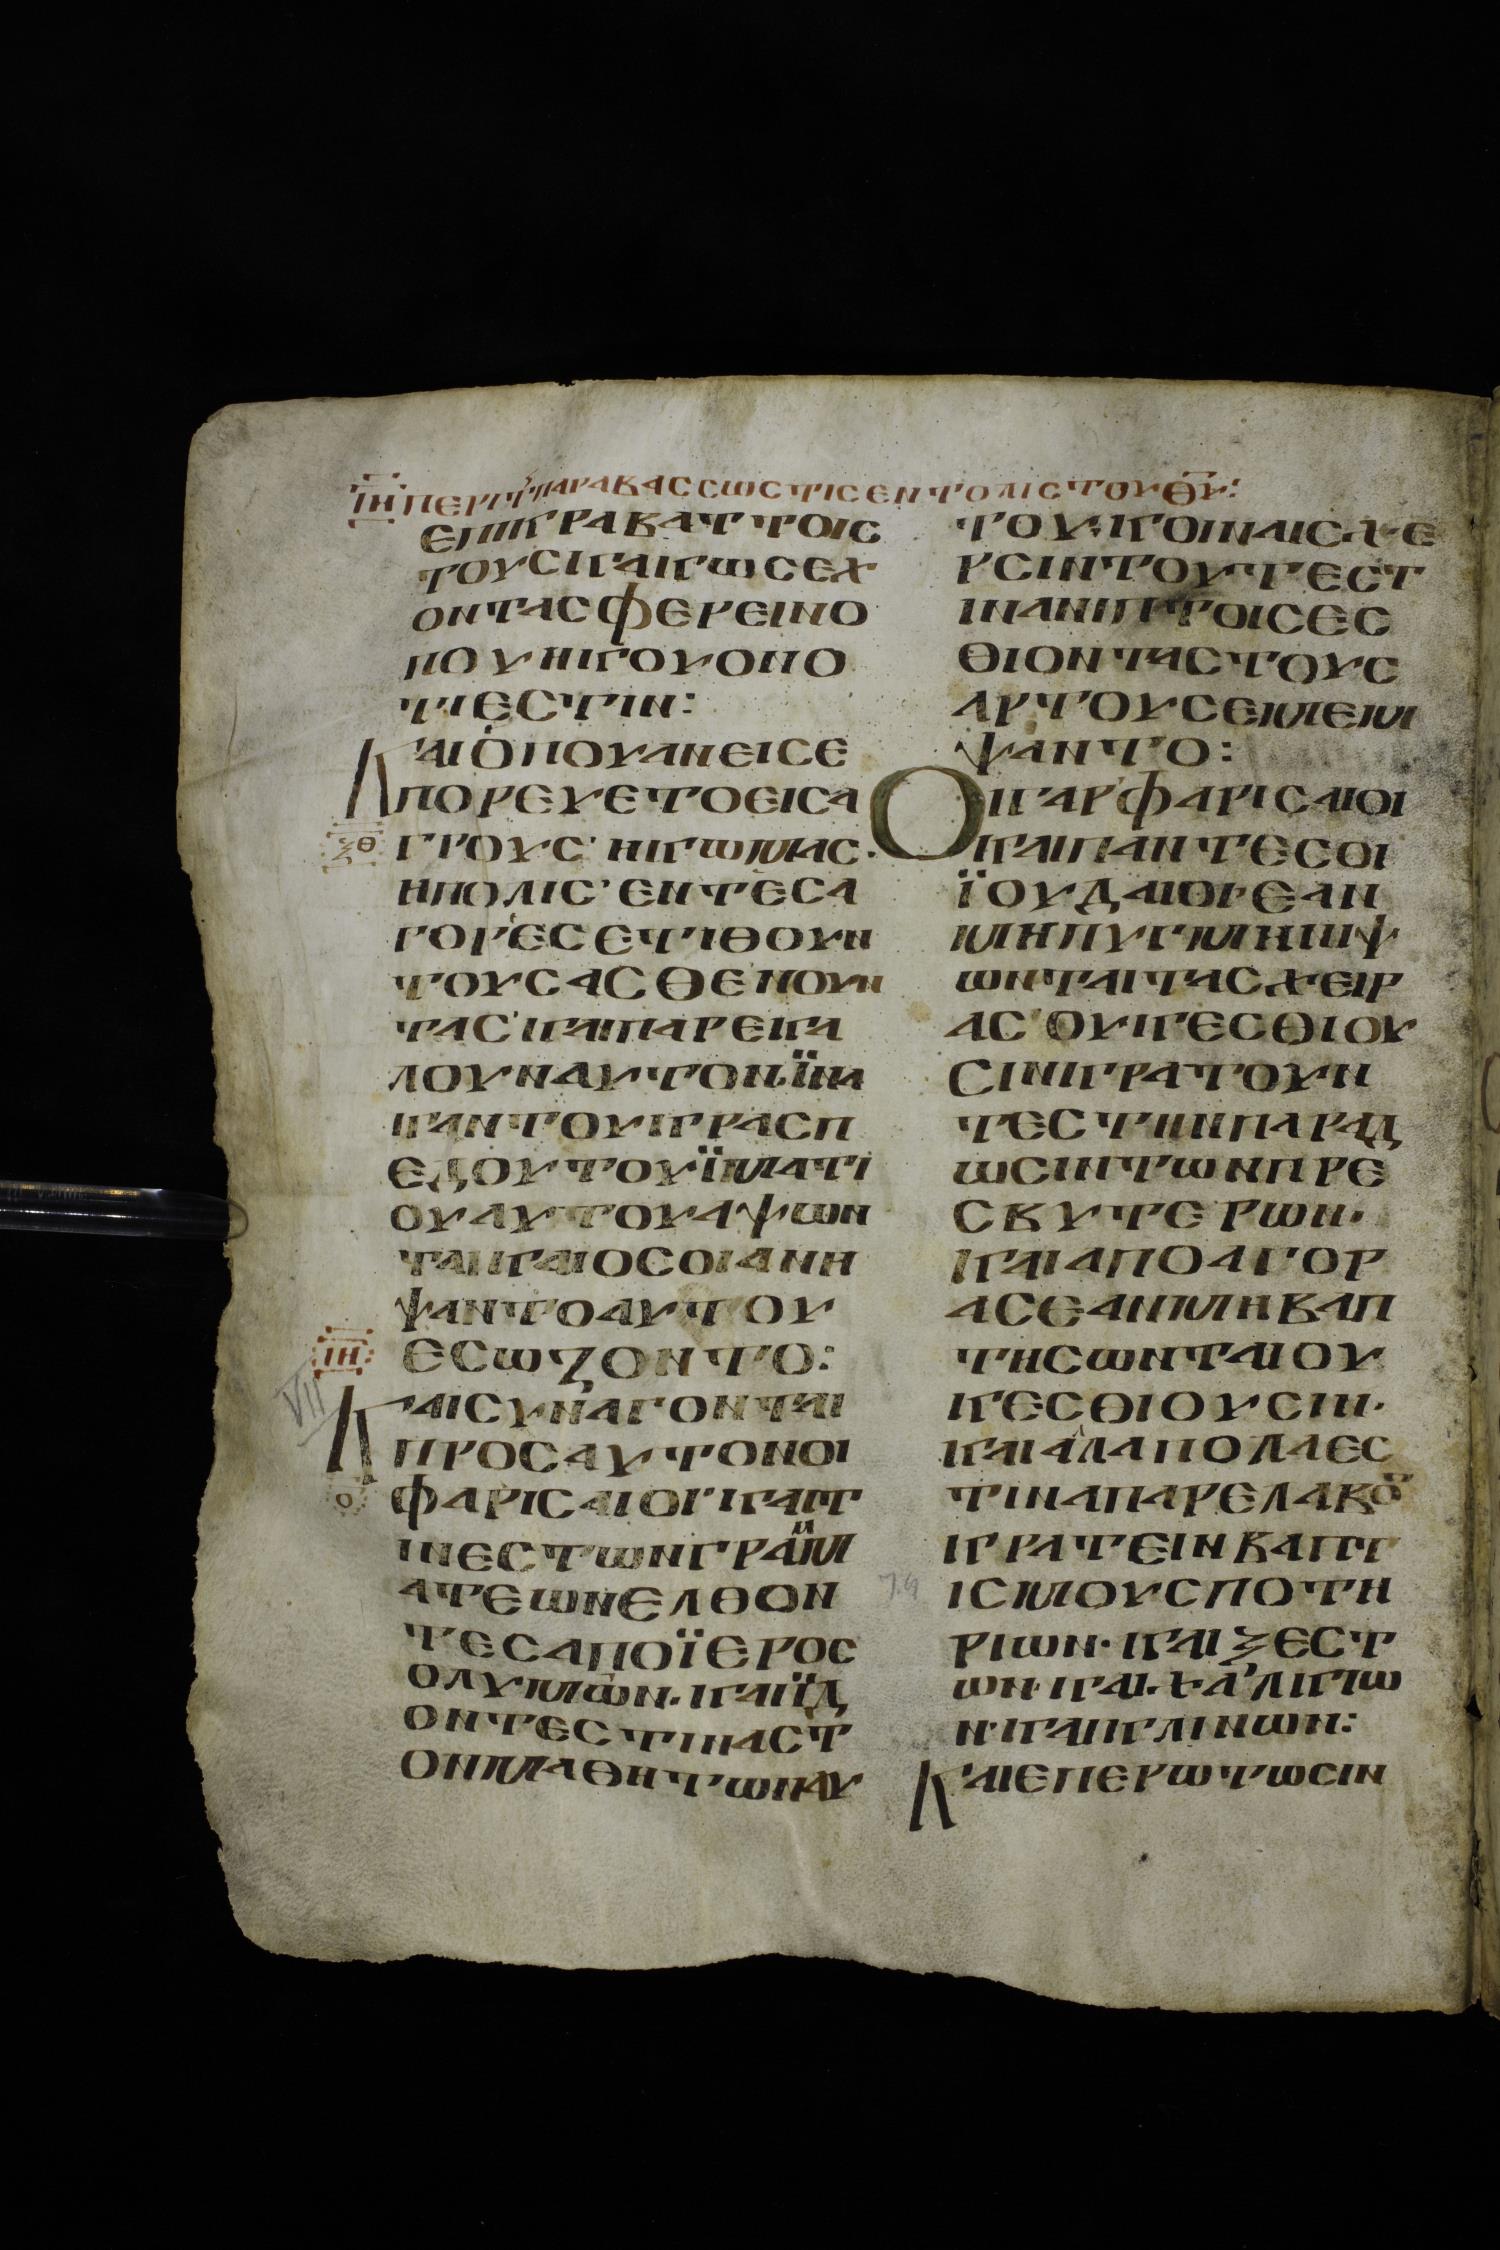 ΙΗ ΠΕΡΙ Τ ΠΑΡΑΒΑCCΩCΤΙCΕΝΤΟΛΙCΤΟΥΘΥ:
ΕΠΙΚΡΑΒΑΤΤΟΙC
ΤΟΥCΙΚΑΙΚΩCΕΧ
ΟΝΤΑCΦΕΡΕΙΝΟ
ΠΟΥΗΚΟΥΟΠΟ
ΤΙΕCΤΙΝ:
ΚΑΙΟΠΟΥΑΝΕΙCΕ
ΠΟΡΕΥΕΤΟΕΙCΑ
ΞΘ
ΓΡΟΥC·ΗΚΩΜΑC·
ΗΠΟΛΙC·ΕΝΤΕCΑ
ΓΟΡΕCΕΤΙΘΟΥΝ
ΤΟΥCΑCΘΕΝΟΥΝ
ΤΑC·ΚΑΙΠΑΡΕΚΑ
ΛΟΥΝΑΥΤΟΝ·ΪΝΑ
ΚΑΝΤΟΥΚΡΑCΠ
ΕΔΟΥΤΟΥΪΜΑΤΙ
ΟΥΑΥΤΟΥΑΨΩΝ
ΤΑΙΚΑΙΟCΟΙΑΝΗ
ΨΑΝΤΟΑΥΤΟΥ
ΕCΩΖΟΝΤΟ:
ΙΗ
VII
ΚΑΙCΥΝΑΓΟΝΤΑΙ
ΠΡΟCΑΥΤΟΝΟΙ
Ο
ΦΑΡΙCΑΙΟΙ·ΚΑΙΤ
ΙΝΕCΤΩΝΓΡΑΜΜ
ΑΤΕΩΝΕΛΘΟΝ
ΤΕCΑΠΟΪΕΡΟC
ΟΛΥΜΩΝ·ΚΑΙΪΔ
ΟΝΤΕCΤΙΝΑCΤ
ΟΝΜΑΘΗΤΩΝΑΥ
ΤΟΥ·ΚΟΙΝΑΙCΧΕ
ΡCΙΝΤΟΥΤΕCΤ
ΙΝΑΝΙΠΤΟΙCΕC
ΘΙΟΝΤΑCΤΟΥC
ΑΡΤΟΥCΕΜΕΜ
ΨΑΝΤΟ:
ΟΙΓΑΡΦΑΡΙCΑΙΟΙ
ΚΑΙΠΑΝΤΕCΟΙ
ΪΟΥΔΑΙΟΙ·ΕΑΝ
ΜΗΠΥΓΜΗΝΙΨ
ΩΝΤΑΙΤΑCΧΕΙΡ
ΑC·ΟΥΚΕCΘΙΟΥ
CΙΝΚΡΑΤΟΥΝ
ΤΕCΤΗΝΠΑΡΑΔ
ΩCΙΝΤΩΝΠΡΕ
CΒΥΤΕΡΩΝ·
ΚΑΙΑΠΟΑΓΟΡ
ΑCΕΑΝΜΗΒΑΠ
ΤΗCΩΝΤΑΙΟΥ
ΚΕCΘΙΟΥCΙΝ·
ΚΑΙΑΛΑΠΟΛΑΕC
ΤΙΝΑΠΑΡΕΛΑΒΟ
ΚΡΑΤΕΙΝΒΑΠΤ
ΙCΜΟΥCΠΟΤΗ
ΡΙΩΝ·ΚΑΙΞΕCΤ
ΩΝ·ΚΑΙ·ΧΑΛΚΙΩ
Ν·ΚΑΙΚΛΙΝΩΝ:
ΚΑΙΕΠΕΡΩΤΩCΙΝ